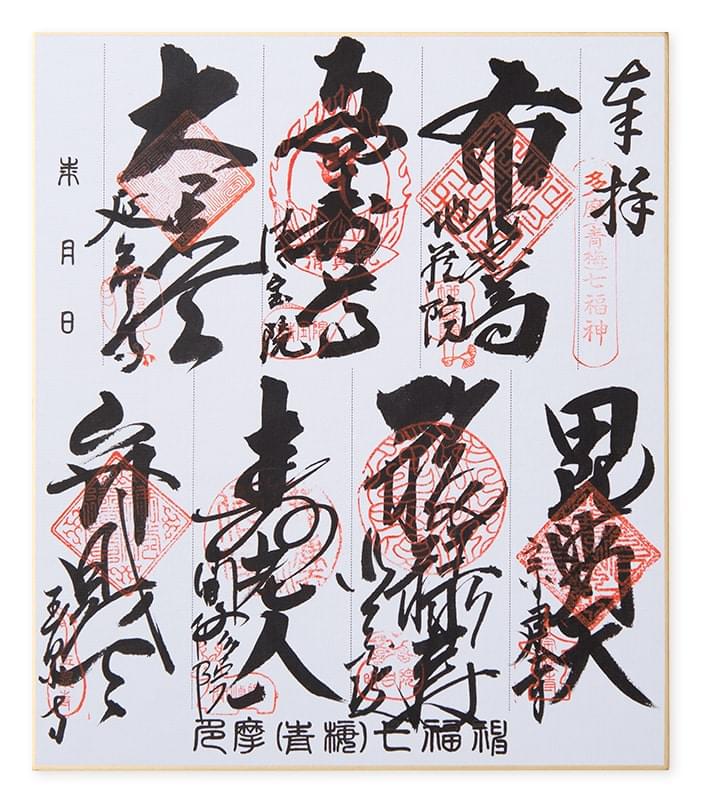 奉拝
多摩青梅七福神
布袋尊
地蔵院
清宝院
大黒天
延命寺
年月日
毘沙門天
宗建寺
福禄寿
明白院
寿老人
聞修院
弁財天
玉泉寺
多摩(青梅)七福神